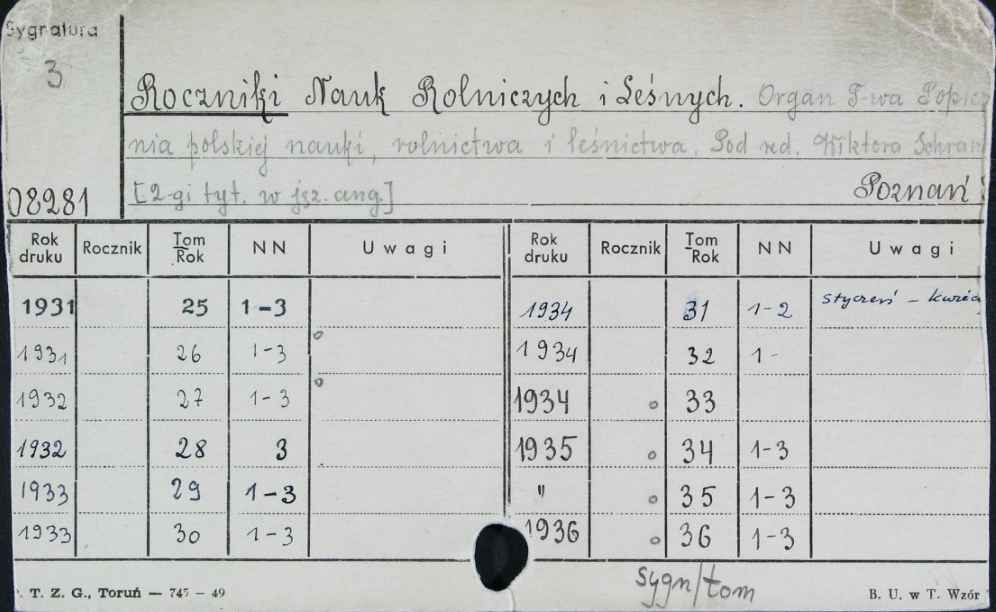 Sygnatura
3
Roczniki Nauk Rolniczych i Leśnych. Organ T-wa Popie
nia polskiej nauki, rolnictwa i leśnictwa. Pod red. Wiktora Schram
08281 [2-gi tyt. w jęz. ang.] Poznań
Rok druku Rocznik Tom Rok NN Uwagi Rok druku Rocznik Tom Rok NN Uwagi
1931 25 1-3 1934 31 1-2 styczeń -
1931 26 1-3 1934 32 1-
1932 27 1-3 1934 33
1932 28 3 1935 34 1-3
1933 29 1-3 " 35 1-3
1933 30 1-3 1936 36 1-3
sygn/tom
T. Z. G., Toruń — 747 — 49 B. U. w T. Wzór